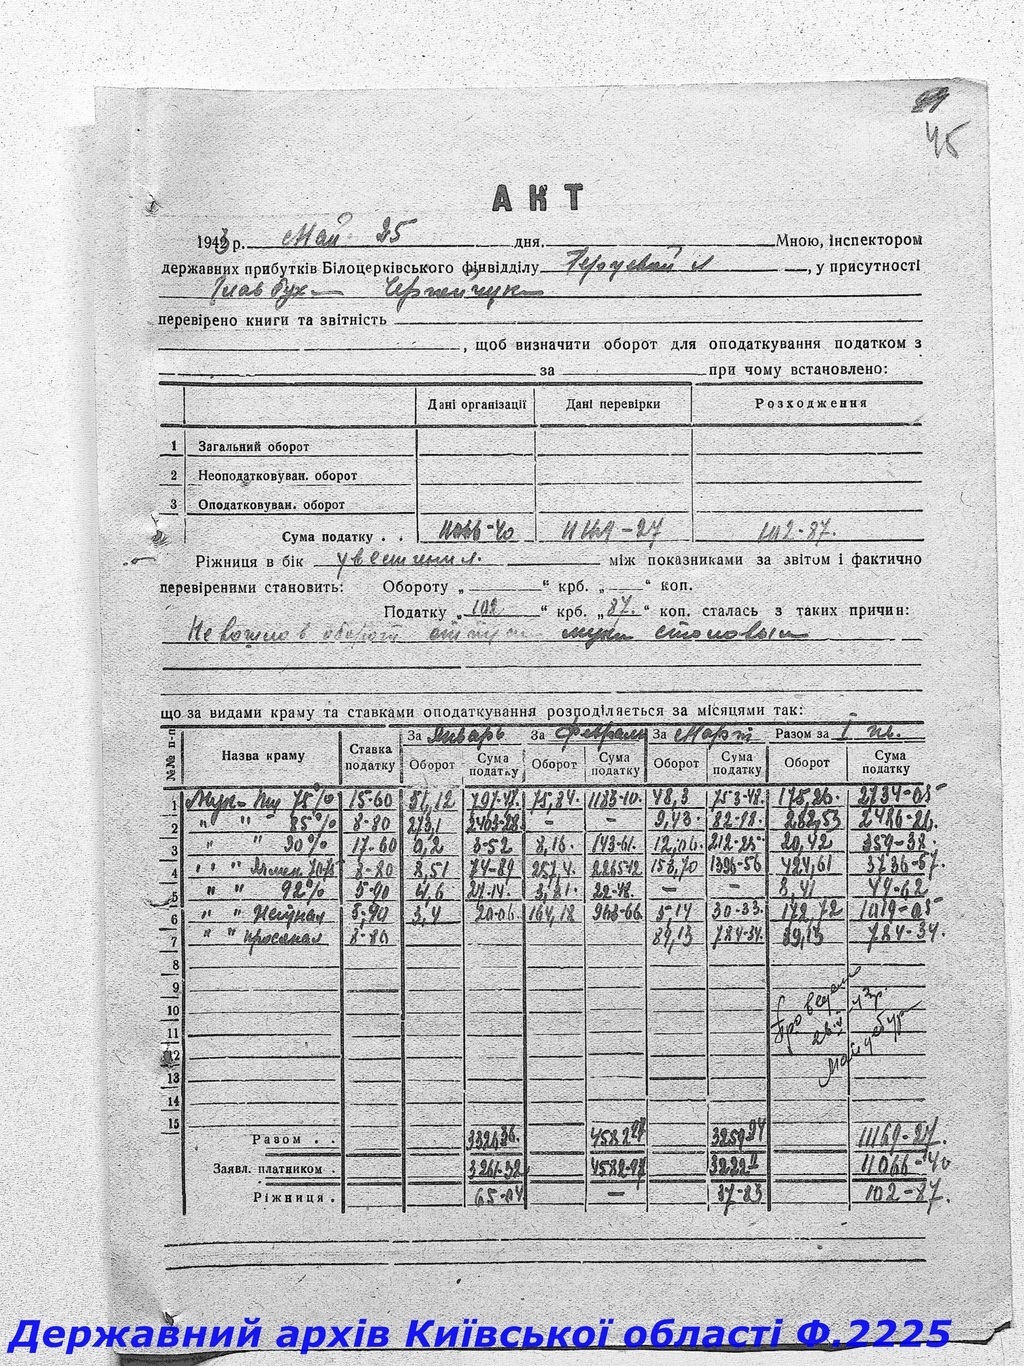 45
АКТ
1943 р. Май 25 дня. Мною, Інспектором
державних прибутків Білоцерківського фінвідділу , у присутності
Главбух
перевірено книги та звітність
, щоб визначити оборот для оподаткування податком з
за при чому встановлено:
Дані організації Дані перевірки Розходження
1 Загальний оборот
2 Неоподатковуван. оборот
3 Оподатковуван. оборот
Сума податку . . 11066-40 11169-27 102-87.
Ріжниця в бік між показниками за звітом і фактично
перевіреними становить: Обороту „ “ крб. „ “ коп.
Податку „102 “ крб. „87.“ коп. сталась з таких причин:
Не вошло в оборот муки столовым
що за видами краму та ставками оподаткування розподіляється за місяцями так:
№№ п-п Назва краму Ставка податку За Январь За Февраль За Март Разом за I кв.
Оборот Сума податку Оборот Сума податку Оборот Сума податку Оборот Сума податку
1 75% 15-60 51,12 797-47 75,84 1183-10. 48,3 753-48. 175,26. 2734-05
2 " " 85% 8-80 273,1 2403-28 - - 9,43 82-98. 282,53 2486-26
3 " " 90% 17-60 0,2 3-52 8,16. 143-61. 12,06 212-25 20,42 359-38.
4 " " 8-80 8,51 74-89 257,4 2265-12 158,70 1396-56 424,61 3736-57
5 " " 92% 5-90 4,6 27-14. 3,81 22-48. - - 8,41 49-62
6 " " 5-90 3,4 20-06. 164,18 968-66 5-14 30-33. 172,72 1019-05
7 " " просяная 8-80 89,13 784-34. 89,13 784-34.
8
9
10
11
12
13
14
15
Разом . . 3326-36. 4582-97 3259-94 11169-27.
Заявл. платником . 3261-32 4582-97 3222-11 11066-40
Ріжниця . 65-04 - 37-83 102-87.
Державний архів Київської області Ф.2225